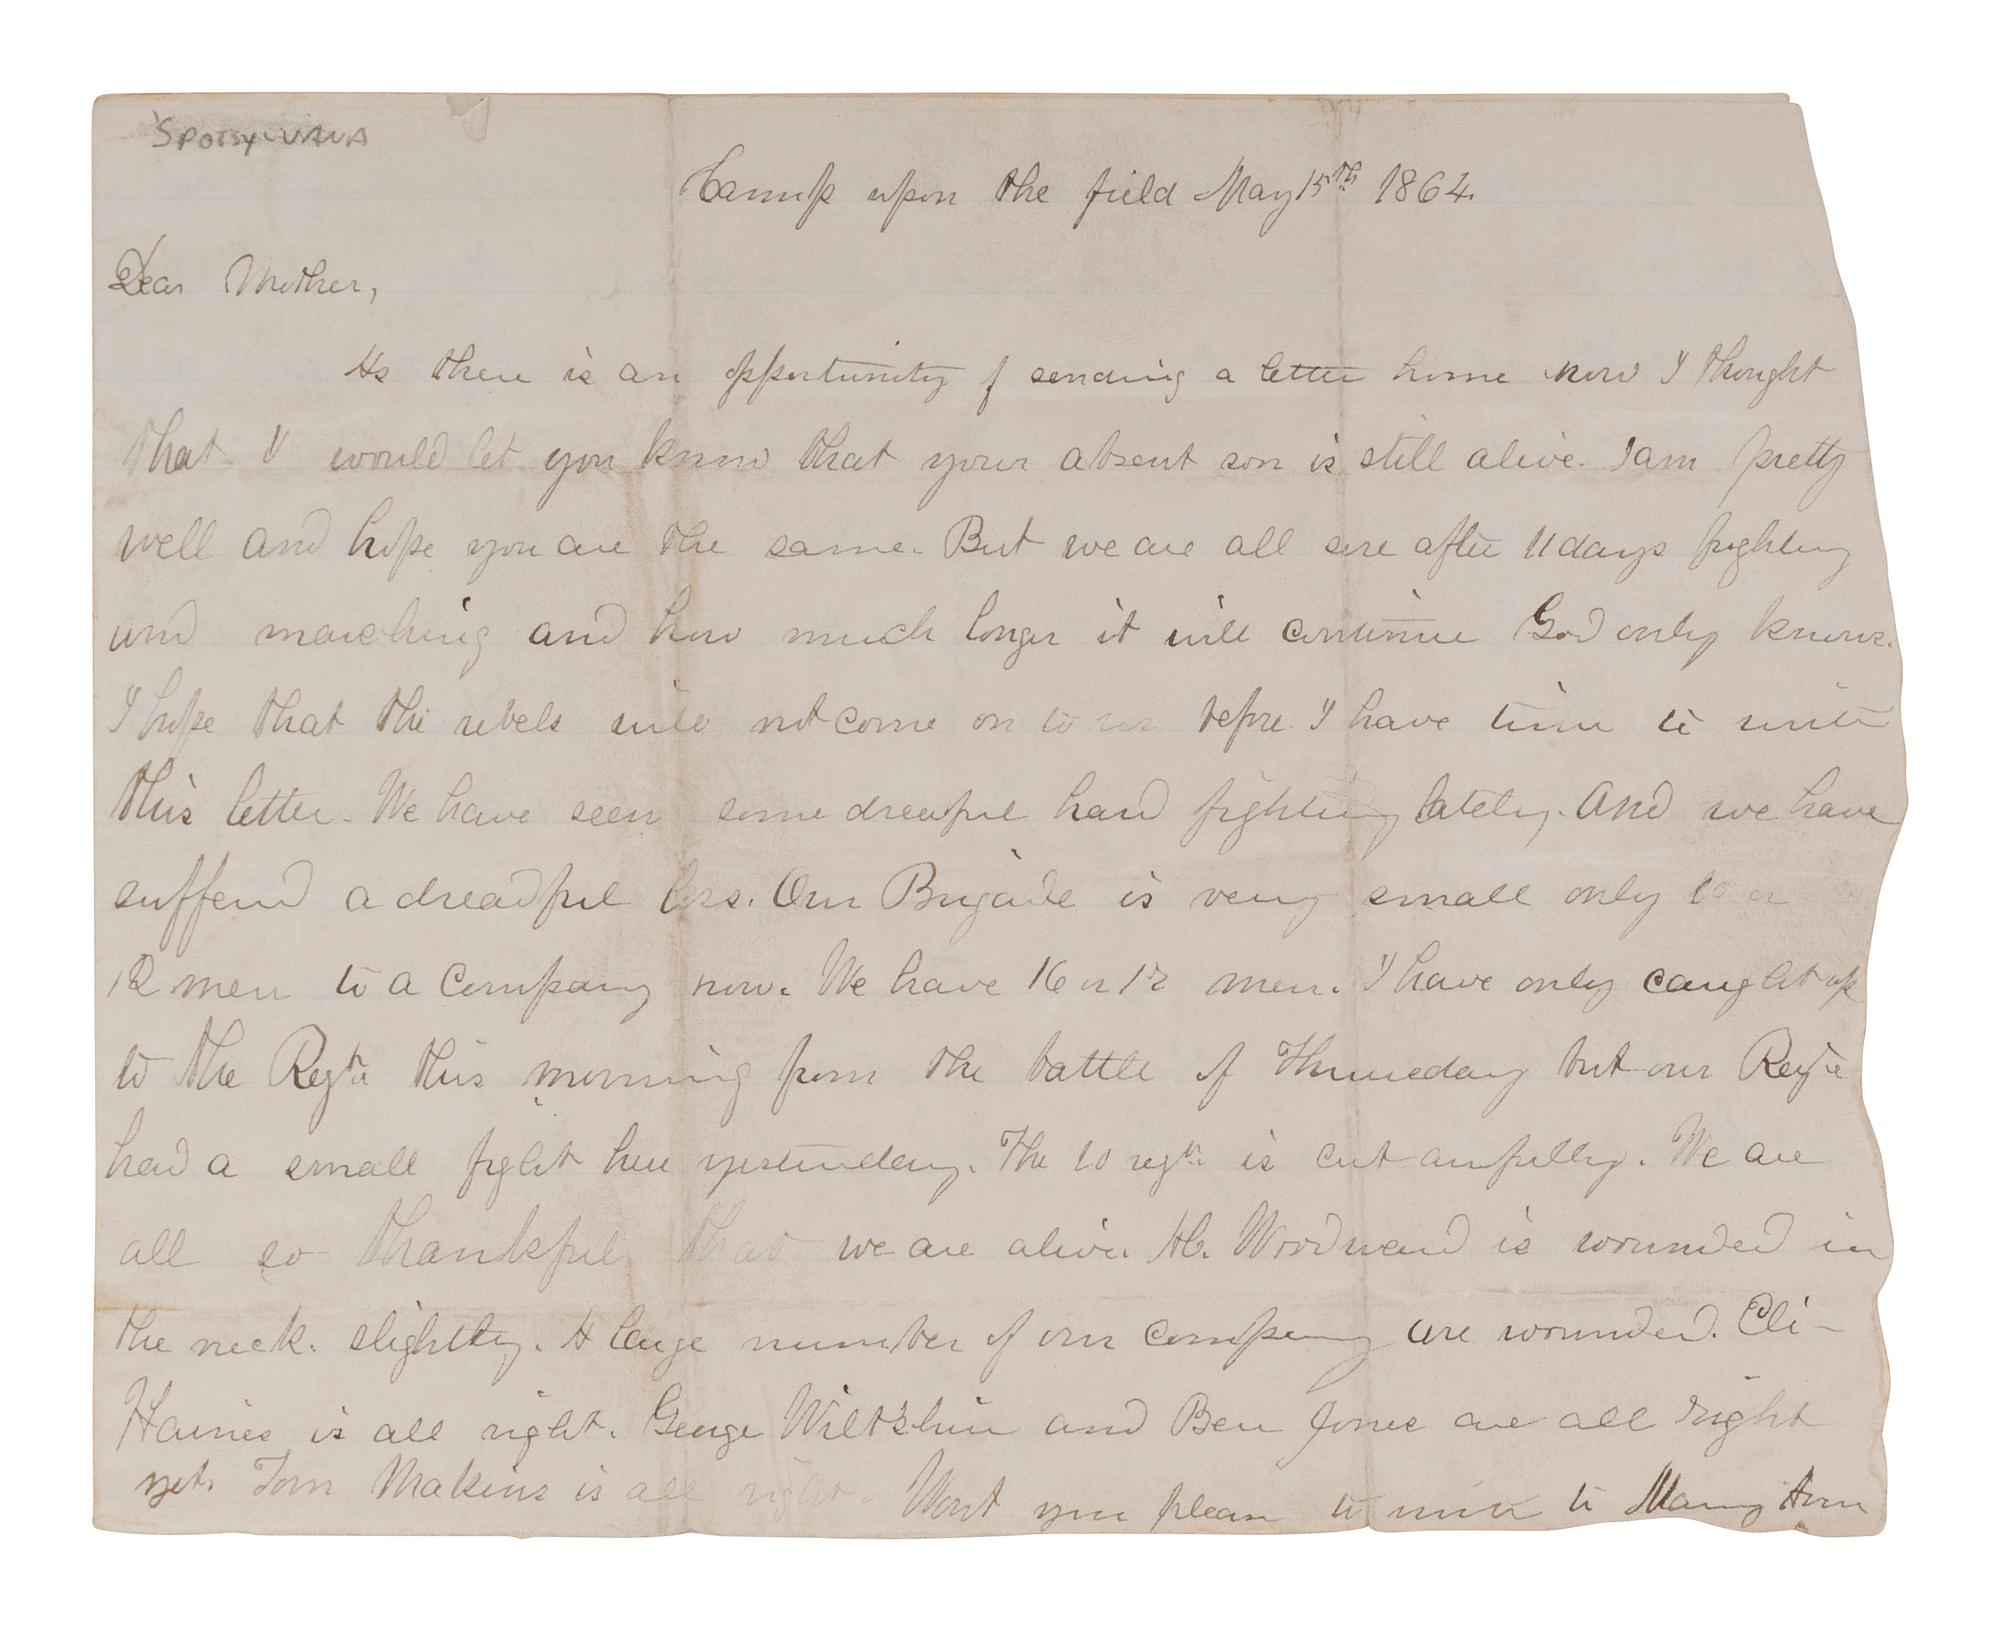 SPOTSYLVANIA
Camp upon the field May 15th 1864.
Dear Mother,
As there is an opportunity of sending a letter home now I thought
that I would let you know that your absent son is still alive. I am pretty
well and hope you are the same. But we are all sore after 11 days fighting
and marching and how much longer it will continue God only knows.
I hope that the rebels will not come on to us before I have time to write
this letter. We have seen some dreadful hard fighting lately. And we have
suffered a dreadful loss. Our Brigade is very small only 10 or
12 men to a company now. We have 16 or 17 men. I have only caught up
to the Regt. this morning from the battle of Thursday but our Regt.
had a small fight here yesterday. The 10 regt. is cut awfully. We are
all so thankful that we are alive. H. Woodward is wounded in
the neck. slightly. A large number of our company are wounded. Eli-
Haines is all right. George Wiltshire and Ben Jones are all right
yet. Tom Makins is all right. Wont you please to write to Mary Ann